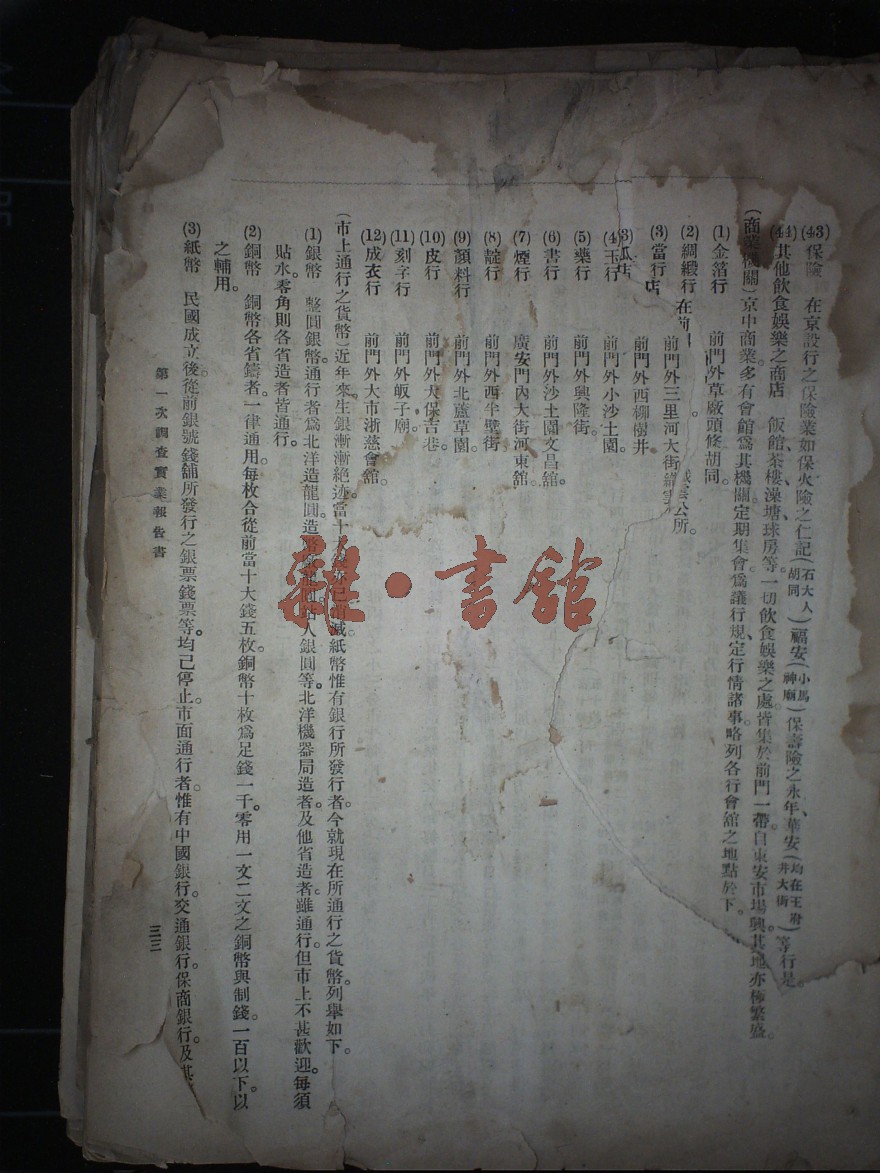 (43)保險　在京設行之保險業如保火險之仁記(石大人胡同)福安(小馬神廟)保壽險之永年、華安(均在王府井大街)等行是。
(44)其他飲食娛樂之商店　飯館、茶樓、澡塘、球房等。一切飲食娛樂之處。皆集於前門一帶。自東安市場興。其地亦極繁盛。
(商業機關)京中商業。多有會館爲其機關。定期集會。爲議行規、定行情諸事。略列各行會舘之地點於下。
(1)金箔行　前門外草廠頭條胡同。
(2)綢緞行　在前　公所。
(3)當行　前門外三里河大街
店　前門外西柳樹井
(4)玉行　前門外小沙土園。
(5)藥行　前門外興隆街。
(6)書行　前門外沙土園文昌舘。
(7)煙行　廣安門內大街河東舘。
(8)靛行　前門外西半壁街
(9)顏料行　前門外北蘆草園。
(10)皮行　前門外大保吉巷。
(11)刻字行　前門外皈子廟。
(12)成衣行　前門外大市浙慈會舘。
(市上通行之貨幣)近年來。生銀漸漸絕迹。當十　減。紙幣惟有銀行所發行者。今就現在所通行之貨幣。列舉如下。
(1)銀幣　整圓銀幣。通行者爲北洋造龍圓。造　人銀圓等。北洋機器局造者。及他省造者。雖通行。但市上不甚歡迎。每須
貼水。零角則各省造者皆通行。
(2)銅幣　銅幣各省鑄者。一律通用。每枚合從前當十大錢五枚。銅幣十枚爲足錢一千。零用一文二文之銅幣與制錢。一百以下。以
之輔用。
(3)紙幣　民國成立後。從前銀號錢舖所發行之銀票錢票等。均已停止。市面通行者。惟有中國銀行。交通銀行。保商銀行。及其
第一次調查實業報告書
三三
雜·書館